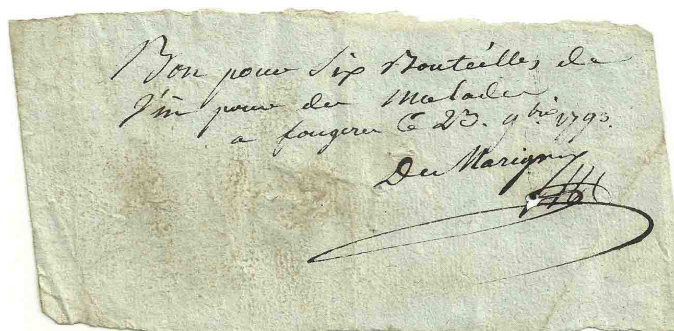 Bon pour Six Bouteilles de
Vin pour des Malades
a fougeres le 23. 9bre 1793.
Des Marigny